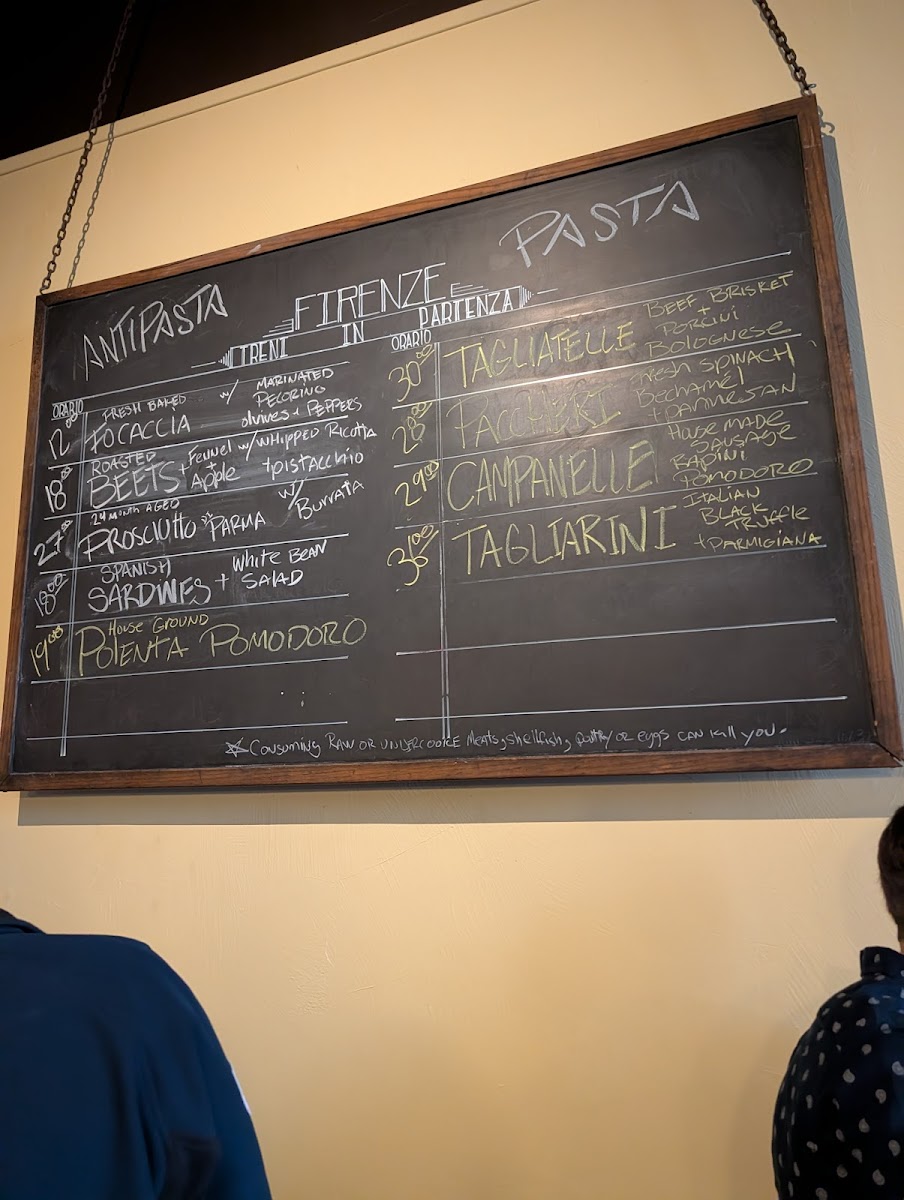 ANTIPASTA
PASTA
FIRENZE
TRENI IN PARTENZA
ORARIO
12.00 FRESH BAKED FOCACCIA w/ MARINATED
PECORINO
olvives + PEPPERS
18.00 ROASTED BEETS + Fennel + Apple w/ WHIPPED RICOTTA
+ PISTACCHIO
27.00 24 MONTH AGED
PROSCIUTTO di PARMA w/ BURRATA
18.00 SPANISH
SARDINES + White BEAN
SALAD
19.00 House GROUND
POLENTA POMODORO
ORARIO
30.00 TAGLIATELLE BEEF BRISKET
+
PORCINI
BOLOGNESE
28.00 PACCHERI Fresh SPINACH
BECHAMEL
+ PARMESAN
29.00 CAMPANELLE HOUSE MADE
SAUSAGE
RAPINI
POMODORO
31.00 TAGLIARINI ITALIAN
BLACK
TRUFFLE
+ PARMIGIANA
Consuming RAW OR UNDERCOOKE Meats, shellfish, poultry or eggs CAN kill you.